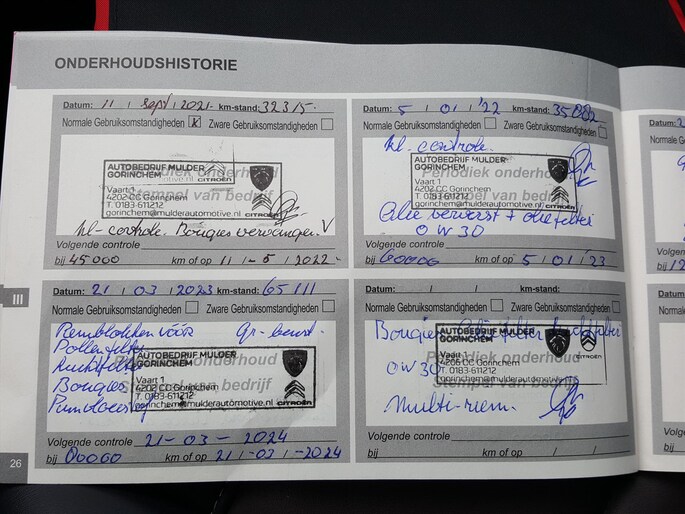 ONDERHOUDSHISTORIE
Datum: 11 / sept / 2021 km-stand: 32315
Normale Gebruiksomstandigheden x Zware Gebruiksomstandigheden
Periodiek onderhoud
Stempel van bedrijf
AUTOBEDRIJF MULDER
GORINCHEM
Vaart 1
4202 CC Gorinchem
T. 0183-611212
gorinchem@mulderautomotive.nl
CITROËN
kl-controle. Bougies vervangen. V
Volgende controle
bij 45000 km of op 11 / - 5 / 2022
Datum: 5 / 01 / '22 km-stand: 35002
Normale Gebruiksomstandigheden Zware Gebruiksomstandigheden
kl-controle.
Periodiek onderhoud
Stempel van bedrijf
AUTOBEDRIJF MULDER
GORINCHEM
Vaart 1
4202 CC Gorinchem
T. 0183-611212
gorinchem@mulderautomotive.nl
CITROËN
Olie ververst + oliefilter
0W30
Volgende controle
bij 60000 km of op 5 / 01 / 23
Datum: 21 / 03 / 2023 km-stand: 65111
Normale Gebruiksomstandigheden Zware Gebruiksomstandigheden
Remblokken vóór gr-beurt
Pollenfilter
Luchtfilter
Bougies
Periodiek onderhoud
Stempel van bedrijf
AUTOBEDRIJF MULDER
GORINCHEM
Vaart 1
4202 CC Gorinchem
T. 0183-611212
gorinchem@mulderautomotive.nl
CITROËN
Volgende controle 21-03-2024
bij km of op 21 / -03 / -2024
Datum: / / km-stand:
Normale Gebruiksomstandigheden Zware Gebruiksomstandigheden
Bougies Oliefilter Luchtfilter
0W30
Multi-riem.
Periodiek onderhoud
Stempel van bedrijf
AUTOBEDRIJF MULDER
GORINCHEM
Vaart 1
4206 CC Gorinchem
T. 0183-611212
gorinchem@mulderautomotive.nl
CITROËN
Volgende controle
bij km of op / /
III
26